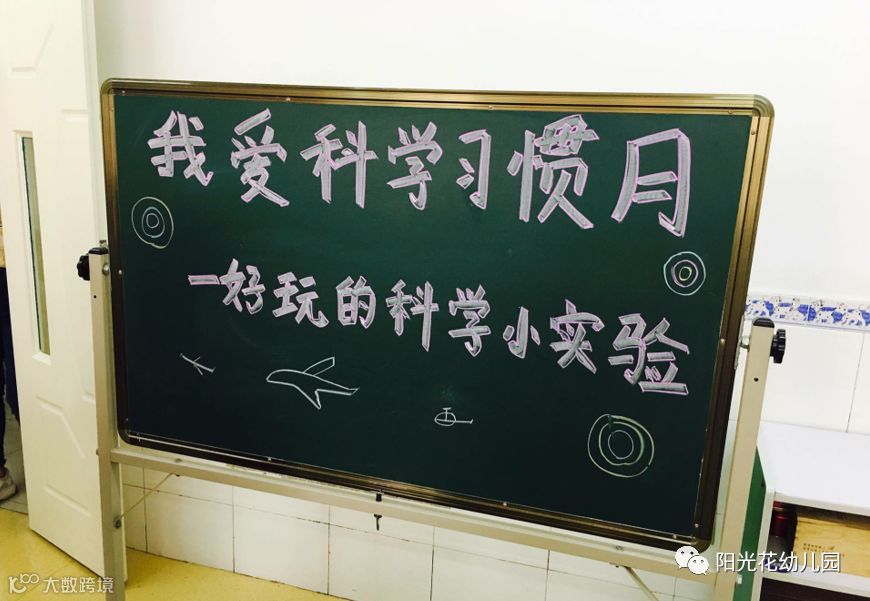 我爱科学习惯月
一好玩的科学小实验
阳光花幼儿园
大数跨境